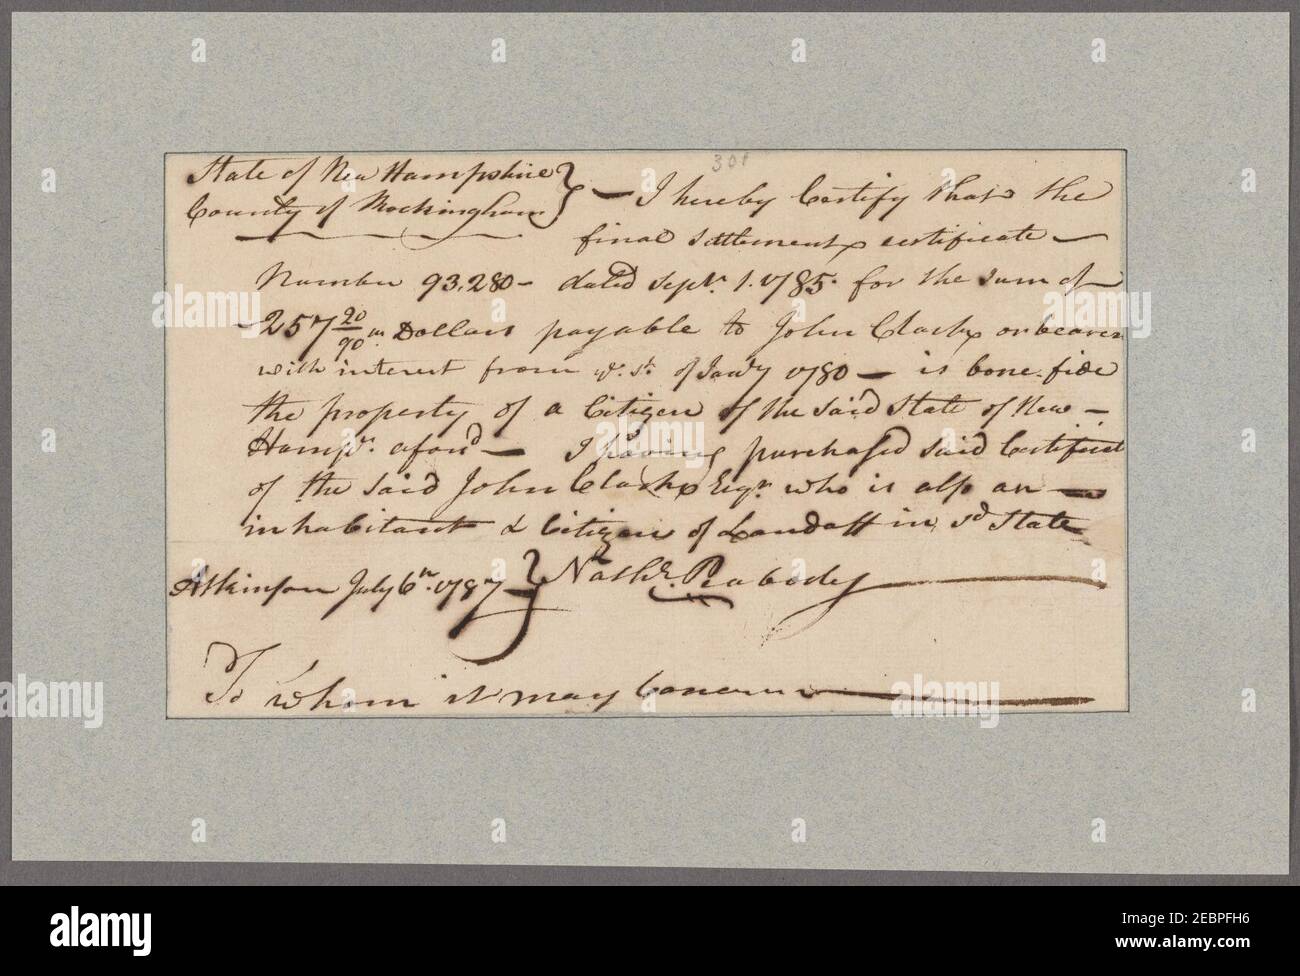 301
State of New Hampshire
County of Rockingham } — I hereby Certify that the
final settlement certificate —
Number 93,280 — dated Septr. 1. 1785. for the sum of
257 20/90 Dollars payable to John Clark or bearer
with interest from ye. 1st. of Jany 1780 — is bone fide
the property of a Citizen of the said State of New —
Hampr. aforsd — I having purchased said Certificat
of the said John Clark Esqr. who is also an —
inhabitant & Citizen of Landaff in sd State
Atkinson July 6th. 1787 } Nathl. Peabody
To whom it may Concern
alamy
Image ID: 2EBPFH6
www.alamy.com